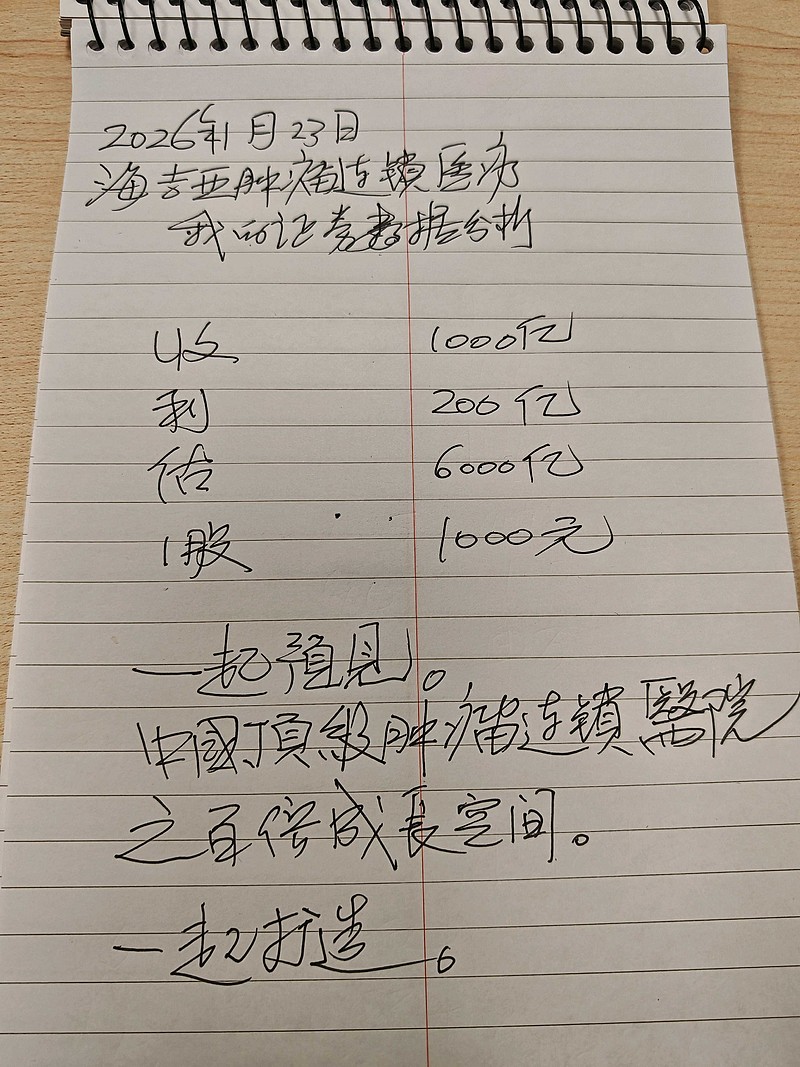 2026年1月23日
海吉亚肿瘤连锁医疗
我的证券数据分析
收 1000亿
利 200亿
估 6000亿
1股 1000元
一起预见。
中國頂級肿瘤连锁醫院
之百倍成長空间。
一起打造。